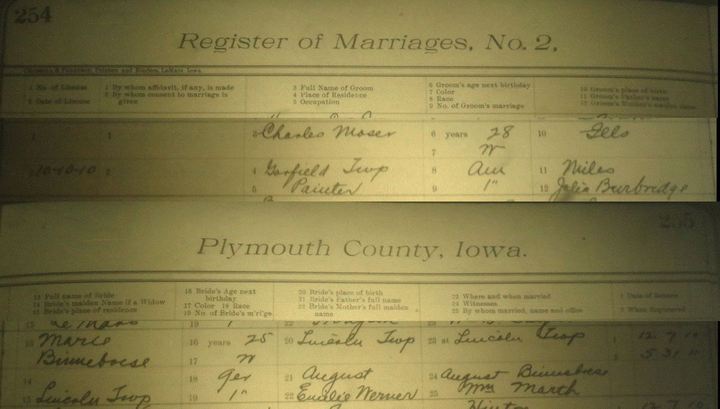 254
Register of Marriages, No. 2,
1 No. of License
2 Date of License
1 By whom affidavit, if any, is made
2 By whom consent to marriage is given
3 Full Name of Groom
4 Place of Residence
5 Occupation
6 Groom's age next birthday
7 Color
8 Race
9 No. of Groom's marriage
10 Groom's place of birth
11 Groom's Father's name
12 Groom's Mother's maiden name
3 Charles Moser
6 years 28
10
7 W
10-10-10
4 Garfield Twp
8 Am
11 Miles
5 Painter
9 1"
12 Julia Burbridge
255
Plymouth County, Iowa.
13 Full name of Bride
14 Bride's maiden Name if a Widow
15 Bride's place of residence
16 Bride's Age next birthday
17 Color 18 Race
19 No. of Bride's m'ri'ge
20 Bride's place of birth
21 Bride's Father's full name
22 Bride's Mother's full maiden name
23 Where and when married
24 Witnesses
25 By whom married, name and office
1 Date of Return
2 When Registered
15 Le Mars
19 1
22
13 Marie
16 years 25
20 Lincoln Twp
23 at Lincoln Twp
12 7 10
Binneboese
17 W
5 31 11
14
18 Ger
21 August
24 August Binneboese
15 Lincoln Twp
19 1"
22 Emilie Werner
Mrs Marth
25
Hinton